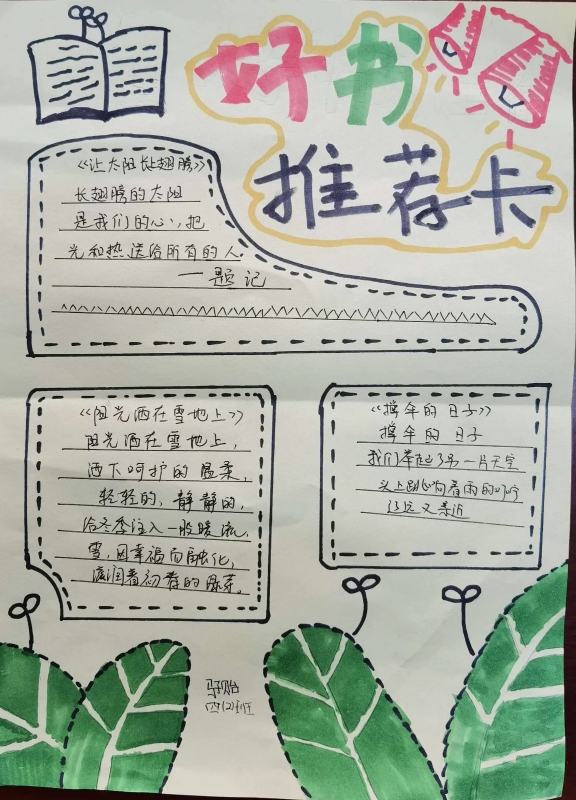 好书
推荐卡
《让太阳长翅膀》
长翅膀的太阳
是我们的心，把
光和热送给所有的人
一题记
《阳光洒在雪地上》
阳光洒在雪地上，
洒下呵护的温柔，
轻轻的，静静的，
给冬季注入一股暖流，
雪，因幸福而融化，
滋润着初春的绿芽。
《撑伞的日子》
撑伞的日子
我们举起了另一片天空
头上跳响着雨的叮咛
辽远又亲近
四(2)班